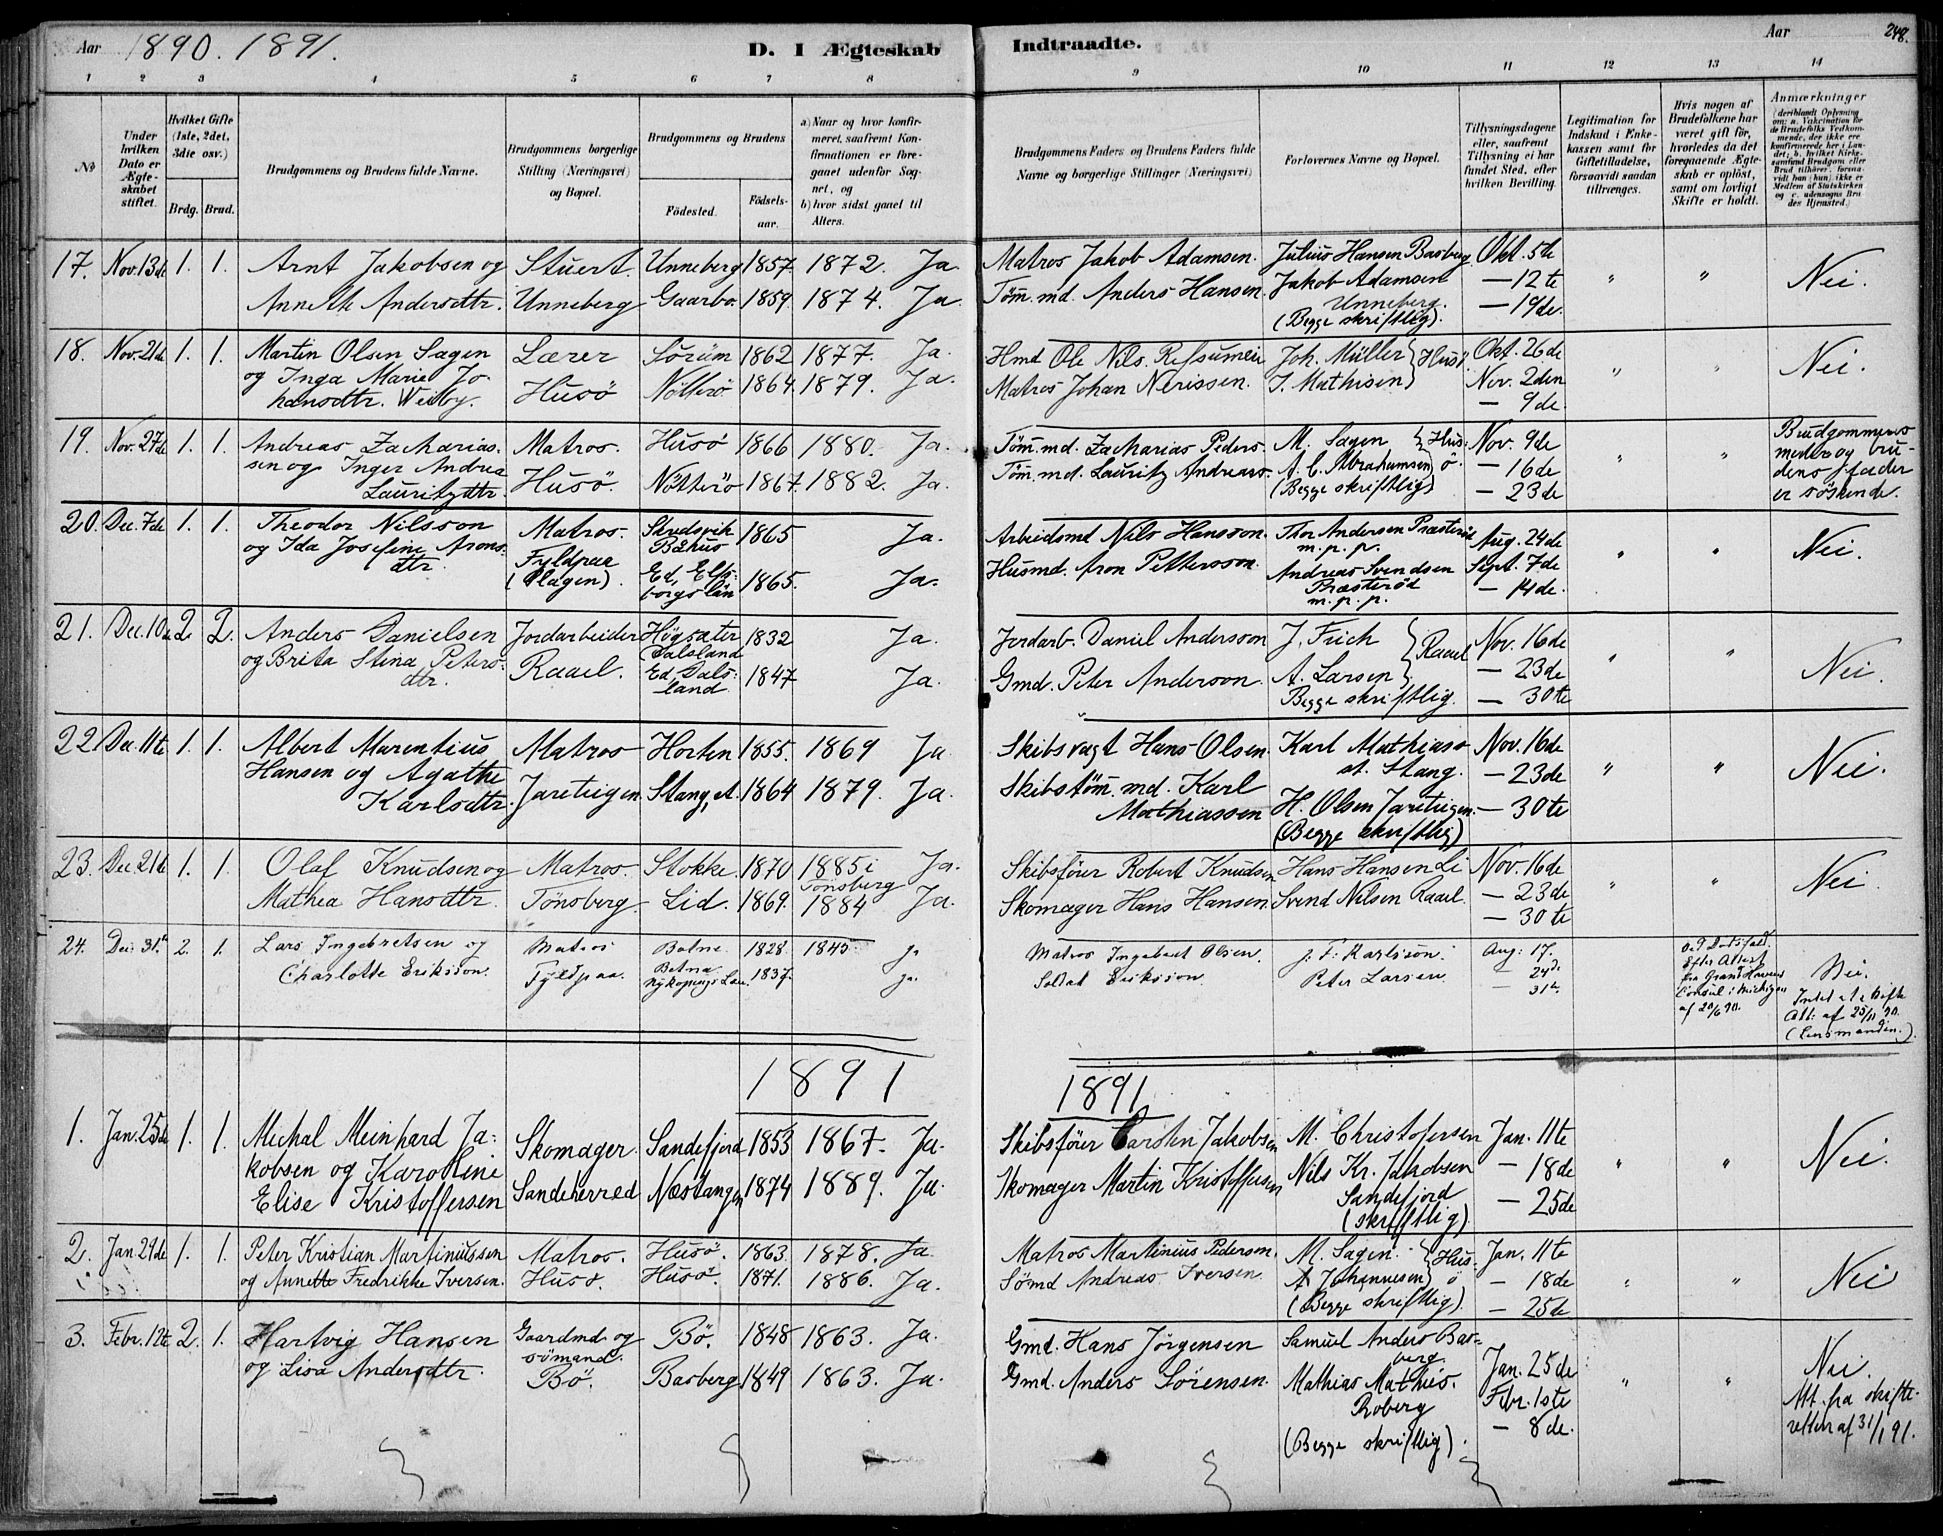 Aar 1890. 1891.
D. I Ægteskab Indtraadte.
Aar 248.
1 2 3 4 5 6 7 8 9 10 11 12 13 14
No
Under hvilken Dato er Ægteskabet stiftet.
Hvilket Gifte (1ste, 2det, 3die osv.)
Brdg. Brud.
Brudgommens og Brudens fulde Navne.
Brudgommens borgerlige Stilling (Næringsvei) og Bopæl.
Brudgommens og Brudens
Fødested.
Fødselsaar.
a) Naar og hvor konfirmeret, saafremt Konfirmationen er foregaaet udenfor Sognet, og
b) hvor sidst gaaet til Alters.
Brudgommens Faders og Brudens Faders fulde Navne og borgerlige Stillinger (Næringsvei)
Forlovernes Navne og Bopæl.
Tillysningsdagene eller, saafremt Tillysning ei har fundet Sted, efter hvilken Bevilling.
Legitimation for Indskud i Enkekassen samt for Giftetilladelse, forsaavidt saadan tiltrænges.
Hvis nogen af Brudefolkene har været gift før, hvorledes da det foregaaende Ægteskab er opløst, samt om lovligt Skifte er holdt.
Anmærkninger
17. Nov. 13de 1. 1. Arnt Jakobsen og Stuert Unneberg 1857 1872. Ja. Matros Jakob Adamsen. Julius Hansen Basberg Okt. 5te
Anneth Andersdtr. Unneberg Gaarbo 1859. 1874. Ja. Tøm.md. Anders Hansen. Jakob Adamsen — 12te " " Nei.
Unneberg. — 19de.
(Begge skriftlig).
18. Nov. 21de 1. 1. Martin Olsen Sagen Lærer Sørum 1862 1877. Ja. Hmd Ole Nils. Joh. Müller } Husö Okt. 26de
og Inga Marie Jo- Husö Nötterö 1864. 1879. Ja. Matros Johan Nerissen. S. Mathisen Nov. 2den " " Nei.
hansdtr. Weiby. — 9de.
19. Nov. 27de 1. 1. Andreas Zacharias- Matros. Husö 1866 1880. Ja. Tøm.md. Zacharias Peders. M. Sagen } Hus- Nov. 9de
sen og Inger Andrea Husö. Nötterö 1867. 1882. Ja. Tøm.md. Lauritz Andreass. A. C. Abrahamsen ö. — 16de " "
Lauritzdtr. (Begge skriftlig) — 23de
Brudgommens
moder og bru-
dens fader
er söskende.
20. Dec. 7de 1. 1. Theodor Nilsson Matros. Skredsvik 1865 Ja. Arbeidsmd Nils Hansson. Thor Andersen Præsterød Aug. 24de
og Ida Josefine Arons- Fyldpaa Båhus m.p.p. " " Nei.
dtr. (Slagen). Ed, Elfs- 1865. Ja. Husmd. Aron Pettersson. Andreas Svendsen Sept. 7de
borgs län Præsterød — 14de.
m.p.p.
21. Dec. 10de 2. 2. Anders Danielsen Jordarbeider Högsæter 1832 Ja. Jordarb. Daniel Andersson J. Frich } Raael Nov. 16de
og Brita Stina Peters- Raael. Dalsland " "
dtr. Ed, Dals- 1847 Ja. Gmd. Peter Anderson. A. Larsen — 23de Nei.
land Begge skriftlig. — 30te
22. Dec. 11te 1. 1. Albert Marentius Matros Horten 1855. 1869 Ja. Skibsvagt Hans Olsen. Karl Mathiass Nov. 16de
Hansen og Agathe st. Stang. — 23de " " Nei.
Karlsdtr. Jareteigen Stang, st. 1864 1879. Ja. Skibstöm. md. Karl Mathiassen H. Olsen Jareteigen. — 30te
(Begge skriftlig)
23. Dec. 21de 1. 1. Olaf Knudsen og Matros. Stokke. 1870 1885 i Tönsberg Ja. Skibsfører Robert Knudsen Hans Hansen Li Nov. 16de
Mathea Hansdtr. Tönsberg. Lid. 1869. 1884 Ja. Skomager Hans Hansen Svend Nilsen Raael. — 23de " " Nei.
— 30te
24. Dec. 31te 2. 1. Lars Ingebretsen og Matros Botne. 1828. 1845. ja Matros Ingebret Olsen. J. F. Karlsson. Aug: 17.
Charlotte Eriksson. Fyldpaa. Nykopings Län. 1837. ja. Soldat Eriksson. Peter Larsen. — 24de
— 31te.
Ved Dødsfald.
Efter Attest
fra Grand Haven
Consul i Michigan
af 20/6 90.
Nei.
Att: af 25/11 90.
(Lensmanden.)
1891 1891
1. Jan. 25de 1. 1. Michal Meinhard Ja- Skomager Sandefjord 1853 1867. Ja. Skibsfører Carsten Jakobsen M. Christofersen Jan. 11te
kobsen og Karoline Nils Kr. Jakobsen — 18de " " Nei.
Elise Kristoffersen Sandeherred Næstangen 1874 1889. Ja. Skomager Martin Kristoffersen Sandefjord — 25de
(skriftlig)
2. Jan. 29de 1. 1. Peter Kristian Martinussen Matros. Husö. 1863. 1878. Ja. Matros Martinius Pedersen. M. Sagen. } Hus- Jan. 11te
og Annette Fredrikke Iversen. Husö. Husö. 1871. 1886. Ja. Sømd Andreas Iversen. A. Johannesen ö — 18de " " Nei
(Begge skriftlig). — 25de
3. Febr. 12te 2. 1. Hartvig Hansen Gaardmd og Bö. 1848 1863. Ja. Gmd. Hans Jörgensen Samuel Anders Bas-
og Lisa Andersdtr. sömand. berg Jan. 25de
Bö. Basberg 1849 1863. Ja. Gmd. Anders Sörensen. Mathias Mathis. Febr. 1ste " "
Roberg — 8de.
(Begge skriftlig).
Nei.
Att. fra skifte-
retten af 31/1 91.